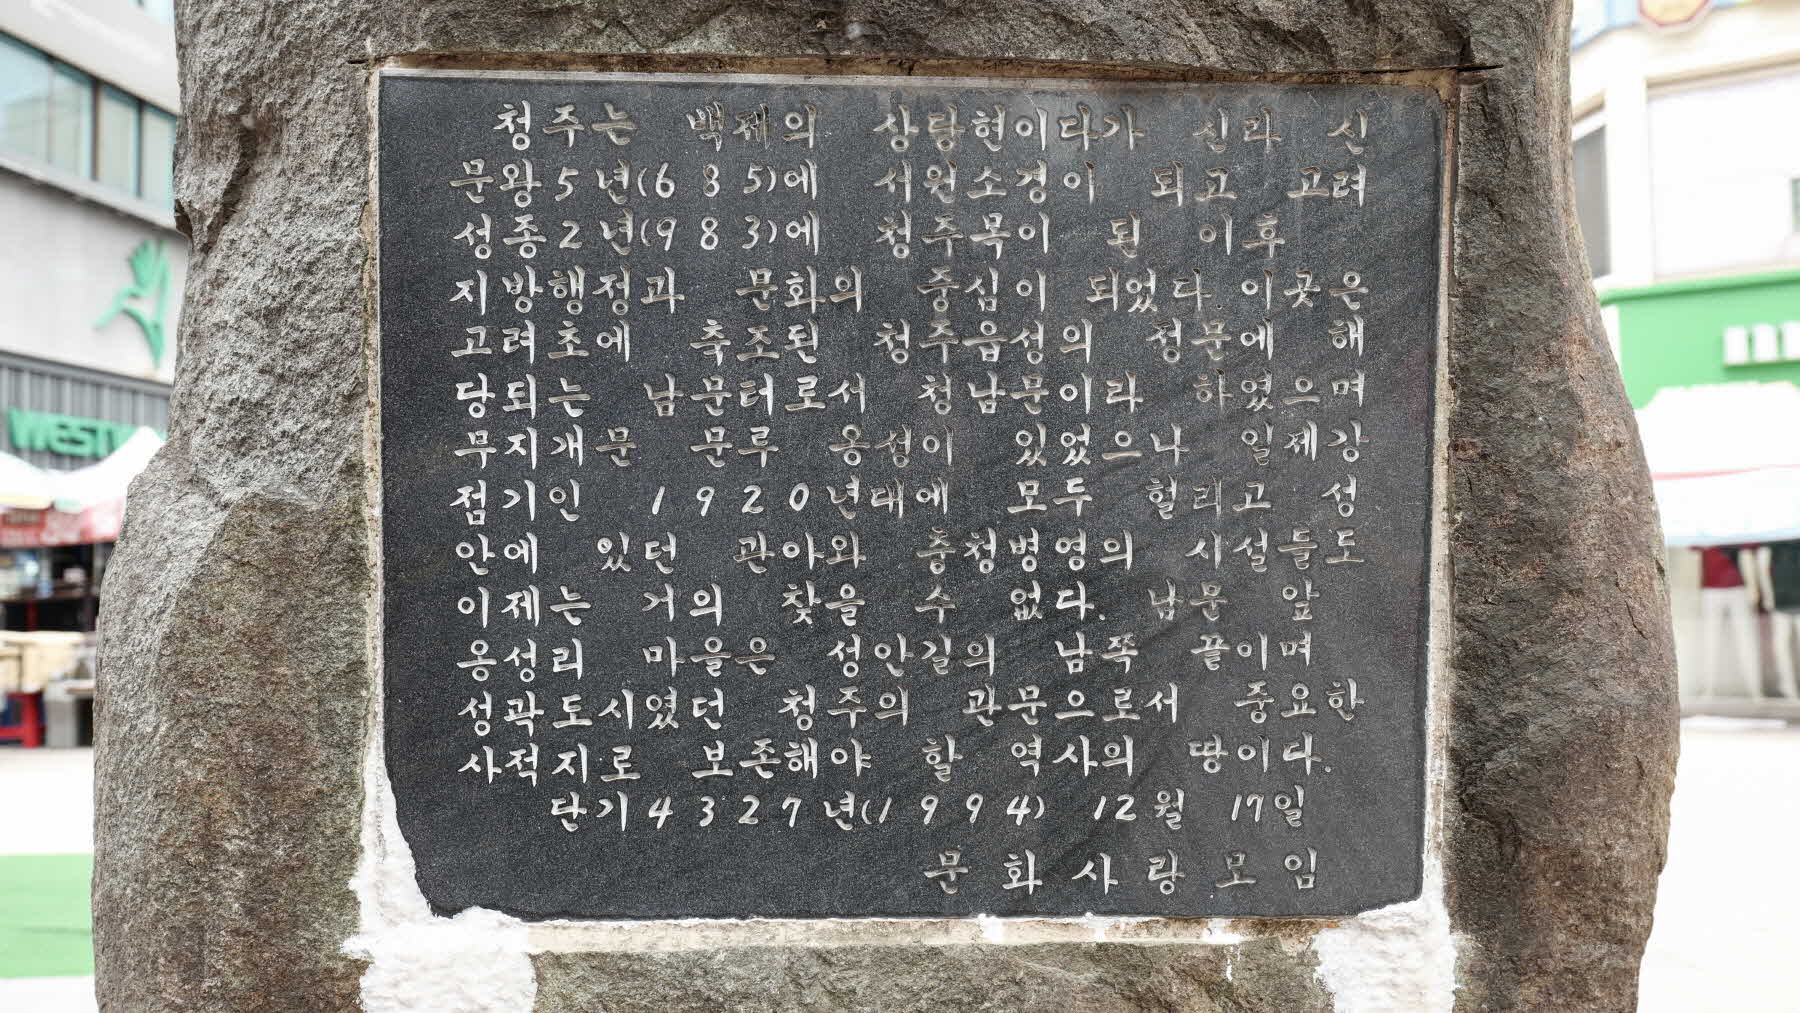 청주는 백제의 상당현이다가 신라 신
문왕5년(685)에 서원소경이 되고 고려
성종2년(983)에 청주목이 된 이후
지방행정과 문화의 중심이 되었다. 이곳은
고려초에 축조된 청주읍성의 정문에 해
당되는 남문터로서 청남문이라 하였으며
무지개문 문루 옹성이 있었으나 일제강
점기인 1920년대에 모두 헐리고 성
안에 있던 관아와 충청병영의 시설들도
이제는 거의 찾을 수 없다. 남문 앞
옹성리 마을은 성안길의 남쪽 끝이며
성곽도시였던 청주의 관문으로서 중요한
사적지로 보존해야 할 역사의 땅이다.
단기4327년(1994) 12월 17일
문화사랑모임